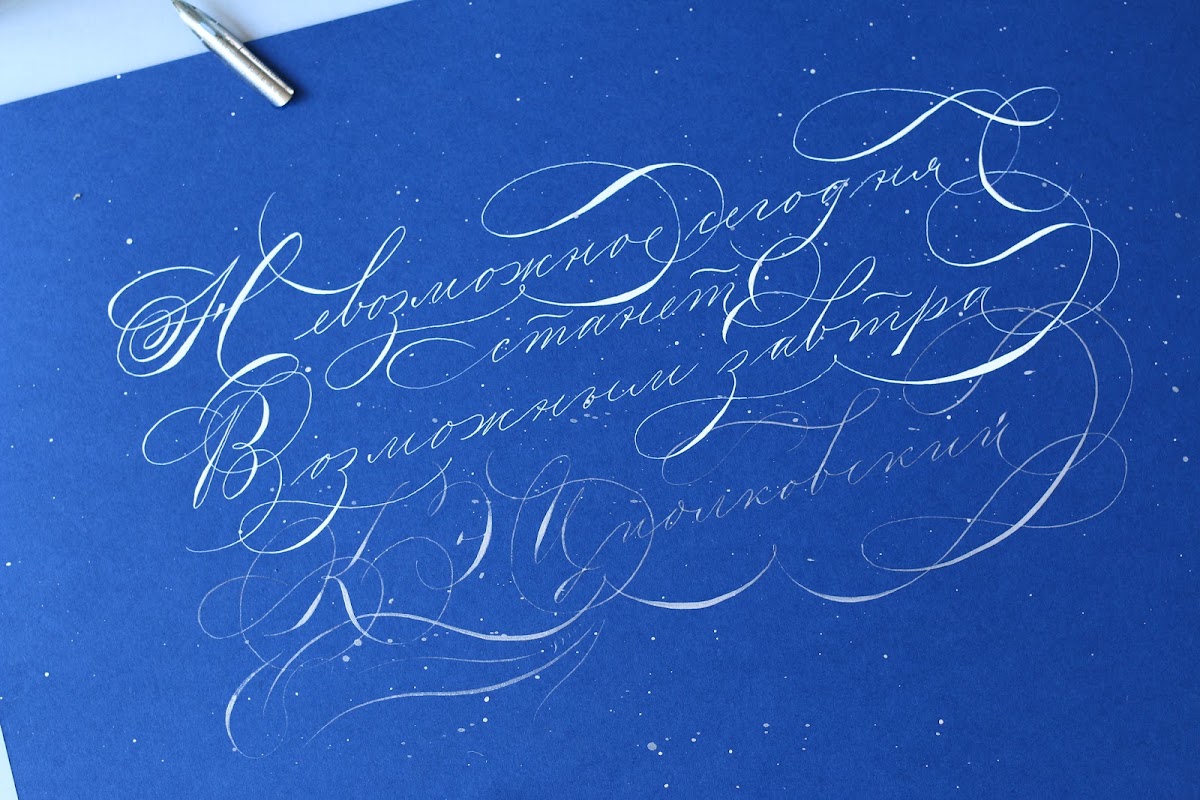 Невозможное сегодня
станет
Возможным завтра
К Э Циолковский